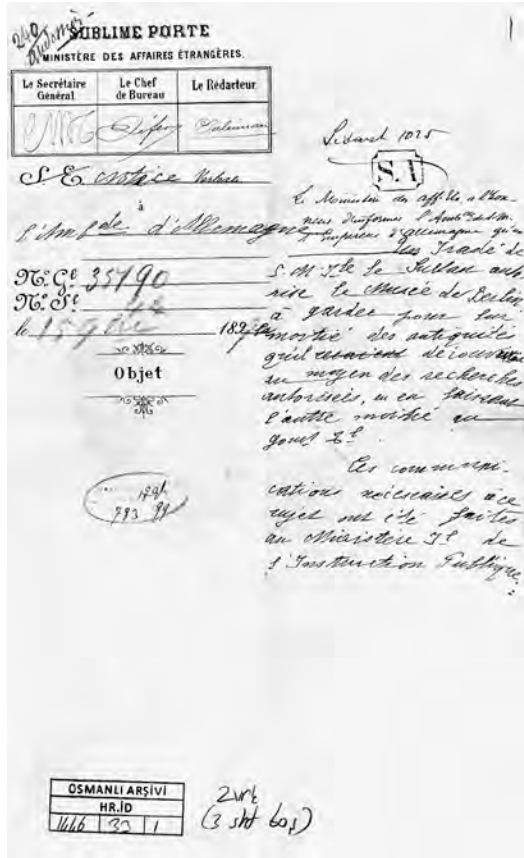 240
SUBLIME PORTE
MINISTÈRE DES AFFAIRES ÉTRANGÈRES.
Le Secrétaire Général
Le Chef de Bureau
Le Rédacteur
S. E. Notice Verbale
à
l'Amb.de d'Allemagne
No. Gl 35190
No. Sl 42
le 15
189
Objet
1025
S. T
Le Ministère des aff. Ete a l'hon-
neur d'informer l'Ambde de S. M.
l'Empereur d'Allemagne qu'un
Iradé de
S. M. Ile le Sultan auto-
rise le Musée de Berlin
à garder pour lui
moitié des antiquités
qu'il découvrir
au moyen des recherches
autorisées, en laissant
l'autre moitié au
gouvt Il.
Les communi-
cations nécessaires à ce
sujet ont été faites
au Ministère Il de
l'Instruction Publique.
793 99
OSMANLI ARŞİVİ
HR.İD
1446 33 1
2 vrk
(3 sht boş)